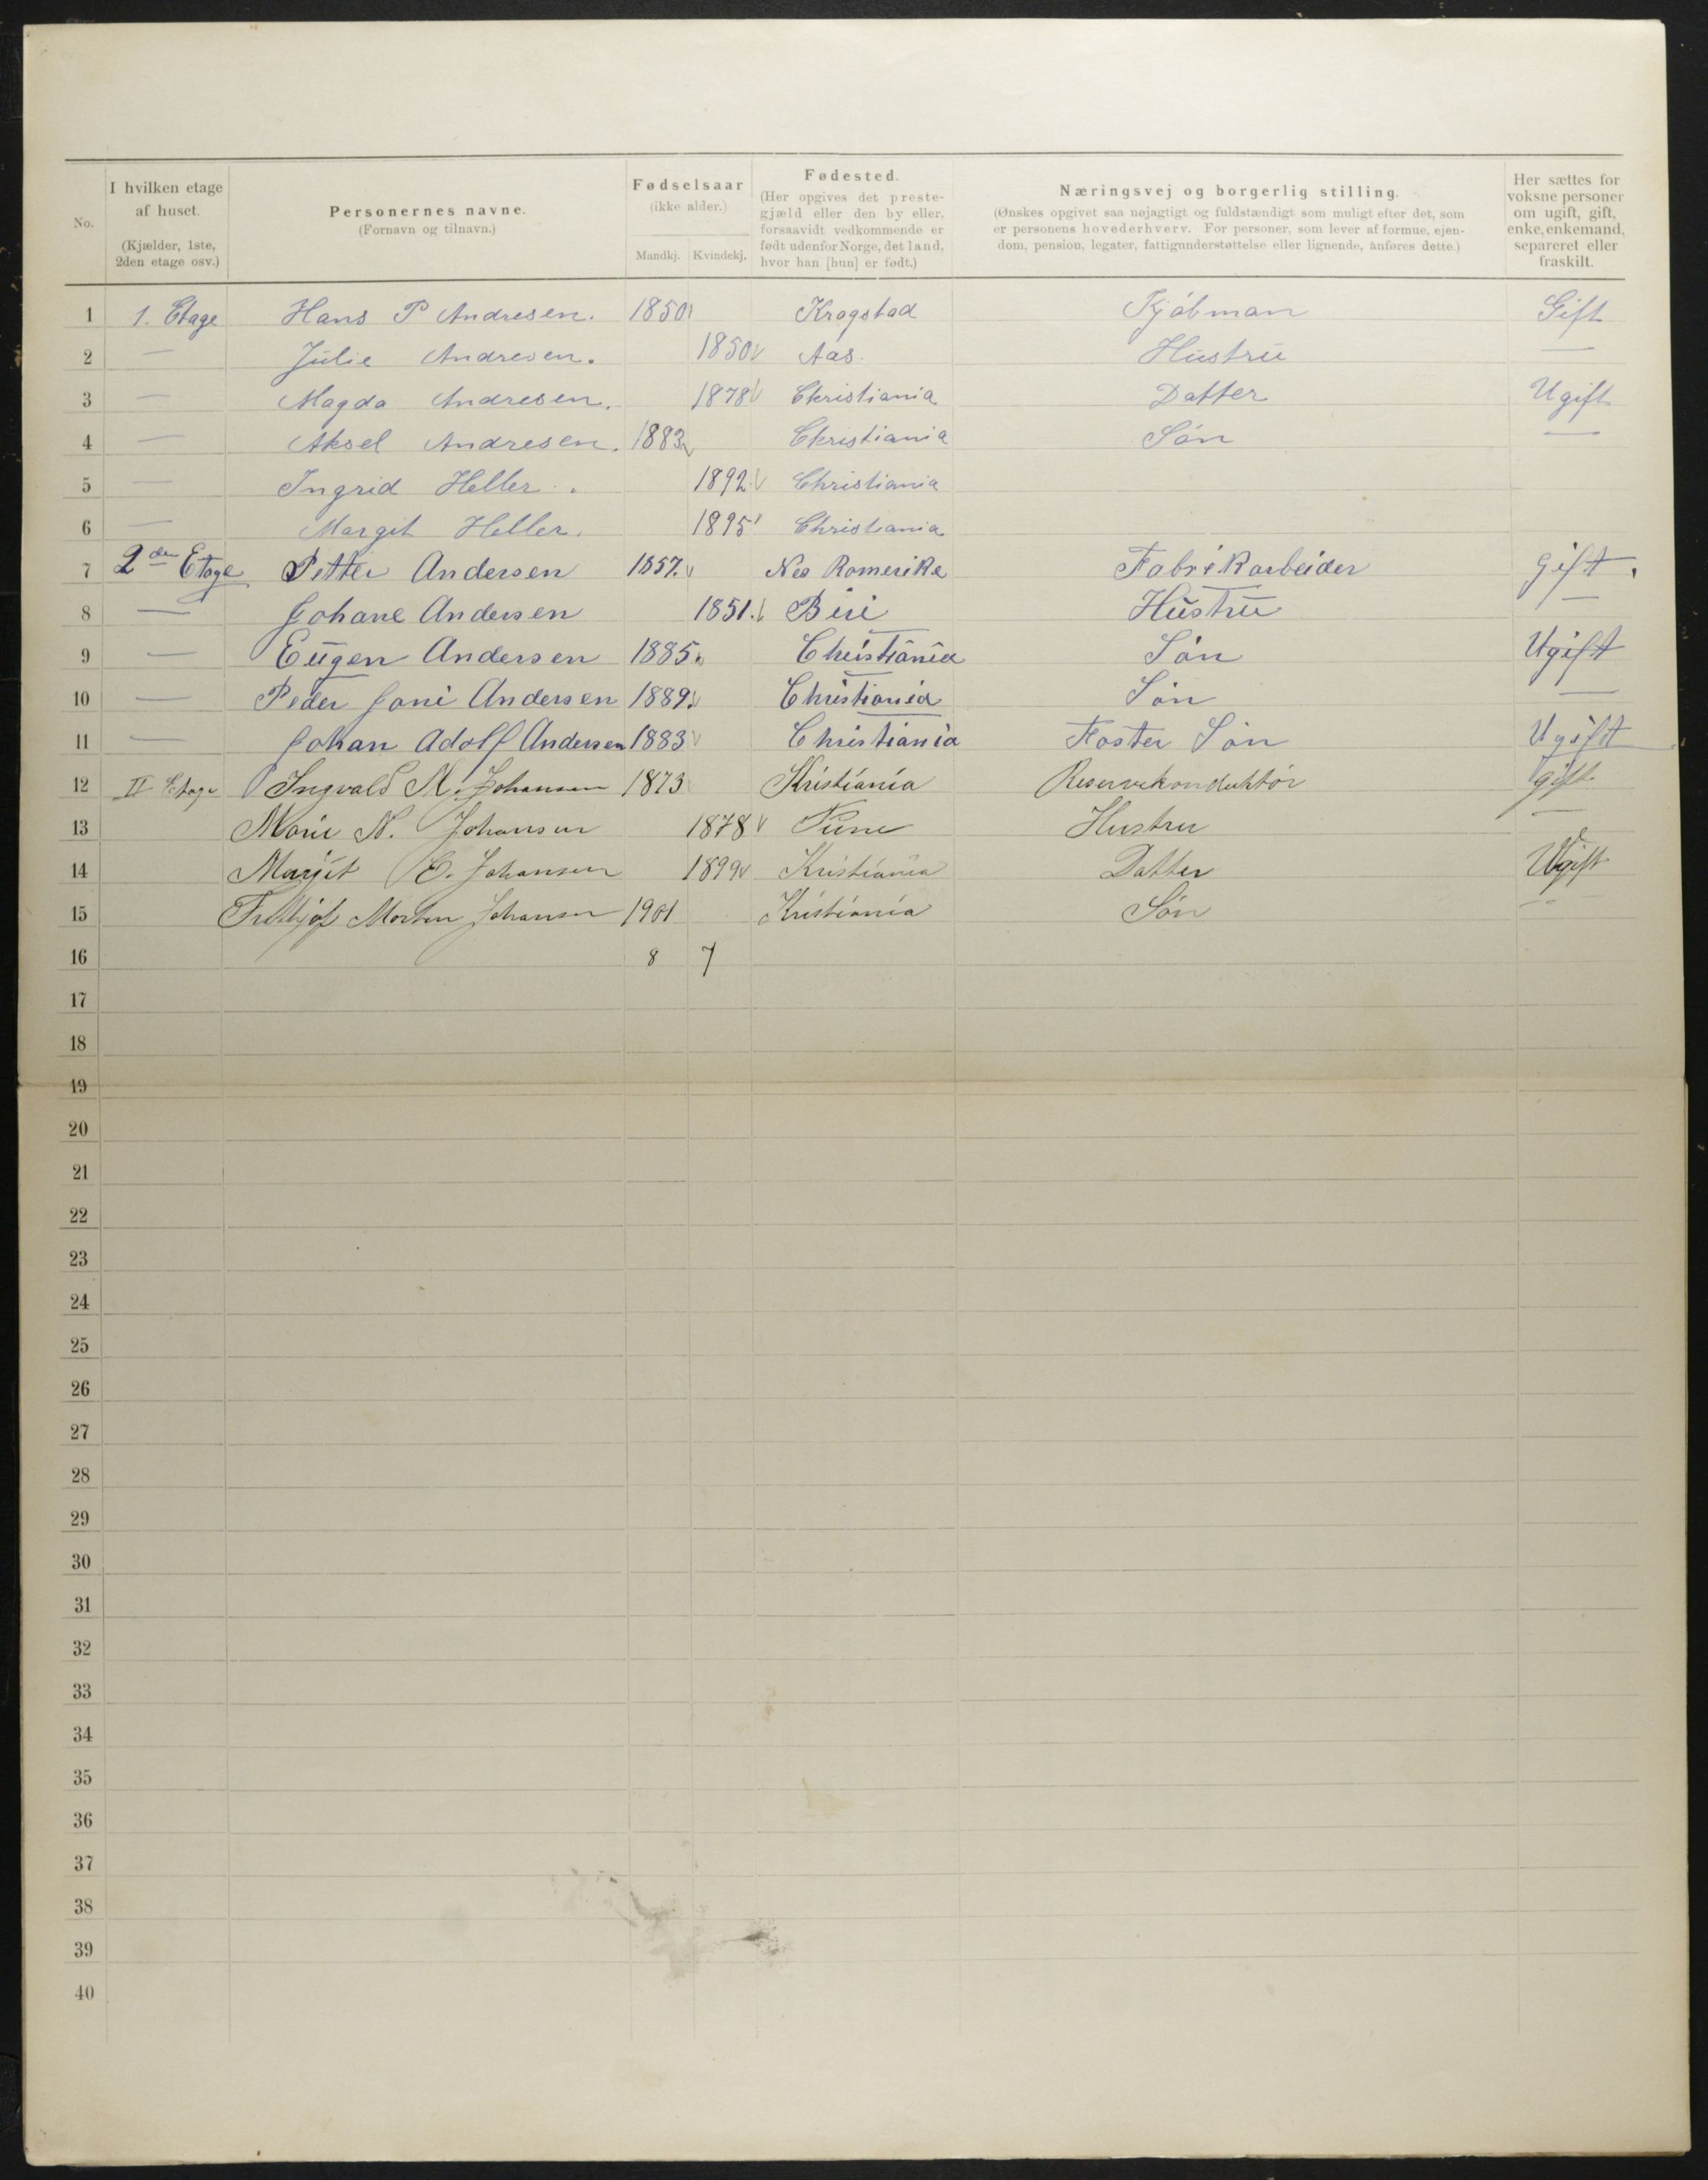 No. | I hvilken etage af huset. (Kjælder, 1ste, 2den etage osv.) | Personernes navne. (Fornavn og tilnavn.) | Fødselsaar (ikke alder.) Mandkj. Kvindekj. | Fødested. (Her opgives det prestegjæld eller den by eller, forsaavidt vedkommende er født udenfor Norge, det land, hvor han [hun] er født.) | Næringsvej og borgerlig stilling. (Ønskes opgivet saa nøjagtigt og fuldstændigt som muligt efter det, som er personens hovederhverv. For personer, som lever af formue, ejendom, pension, legater, fattigunderstøttelse eller lignende, anføres dette.) | Her sættes for voksne personer om ugift, gift, enke, enkemand, separeret eller fraskilt.
1 1. Etage Hans P Andresen. 1850 Kragstad Kjøbman Gift
2 — Julie Andresen. 1850 Aas. Hustru —
3 — Magda Andresen. 1878 Christiania Datter Ugift
4 — Aksel Andresen. 1883 Christiania Søn —
5 — Ingrid Heller. 1892 Christiania
6 — Margit Heller. 1895 Christiania
7 2den Etage Petter Andersen 1857. Nes Romerike Fabrikarbeider gift.
8 — Johane Andersen 1851. Biri Hustru —
9 — Eugen Andersen 1885. Christiania Søn Ugift
10 — Peder Andersen 1889. Christiania Søn —
11 — Johan Adolf Andersen 1883 Christiania Foster Søn Ugift
12 II Etage Ingvald M. Johansen 1873 Kristiania Reservekonduktør gift
13 Marie N. Johansen 1878 Hustru —
14 Margit E. Johansen 1899 Kristiania Datter Ugift
15 Frithjof Morten Johansen 1901 Kristiania Søn --
16 8 7
17
18
19
20
21
22
23
24
25
26
27
28
29
30
31
32
33
34
35
36
37
38
39
40